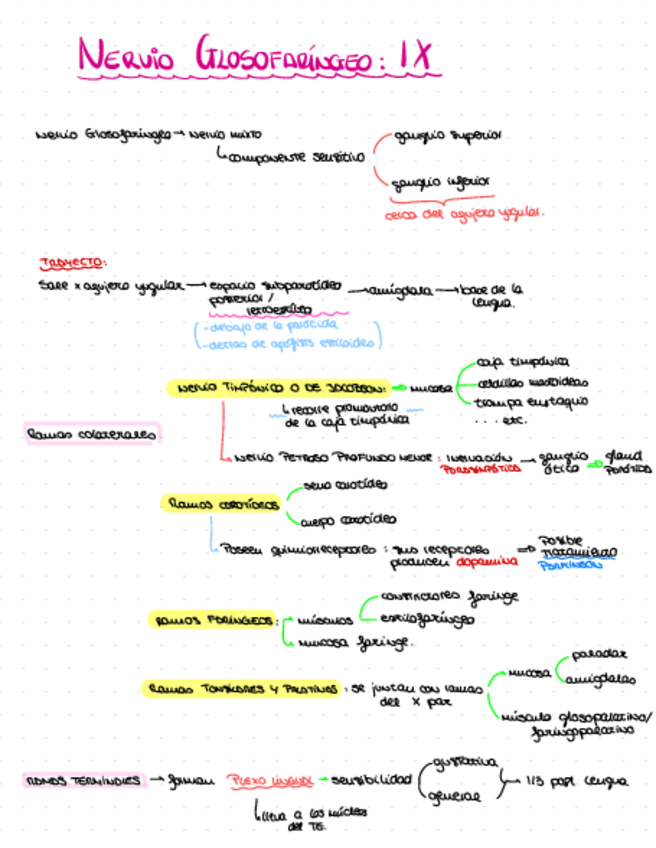 NERVIO GLOSOFARÍNGEO: IX
Nervio Glosofaríngeo → Nervio mixto
componente sensitivo
ganglio superior
ganglio inferior
cerca del agujero yugular.
TRAYECTO:
Sale x agujero yugular → espacio subparotídeo → amígdala → base de la
posterior/
lengua.
retroestíleo
(-debajo de la parótida
-detrás de apófisis estiloides)
NERVIO TIMPÁNICO O DE JACOBSON: → mucosa
caja timpánica
celdillas mastoideas
trompa eustaquio
... etc.
recorre promontorio
de la caja timpánica
Ramas colaterales
NERVIO PETROSO PROFUNDO MENOR: INERVACIÓN → ganglio ⇒ gland
PARASIMPÁTICA ótico PARÓTIDA
RAMOS CAROTÍDEOS
seno carotídeo
cuerpo carotídeo
Poseen quimiorreceptores: sus receptores ⇒ Posible
producen dopamina tratamiento
PARKINSON
RAMOS FARÍNGEOS:
músculos
constrictores faringe
estilofaríngeo
mucosa faringe.
RAMAS TONSILARES Y PALATINAS: se juntan con ramas
del X par
mucosa
paladar
amígdalas
músculo glosopalatino/
faringopalatino
RAMOS TERMINALES → forman PLEXO LINGUAL → sensibilidad
gustativa
general
1/3 post lengua
lleva a los núcleos
del TE.